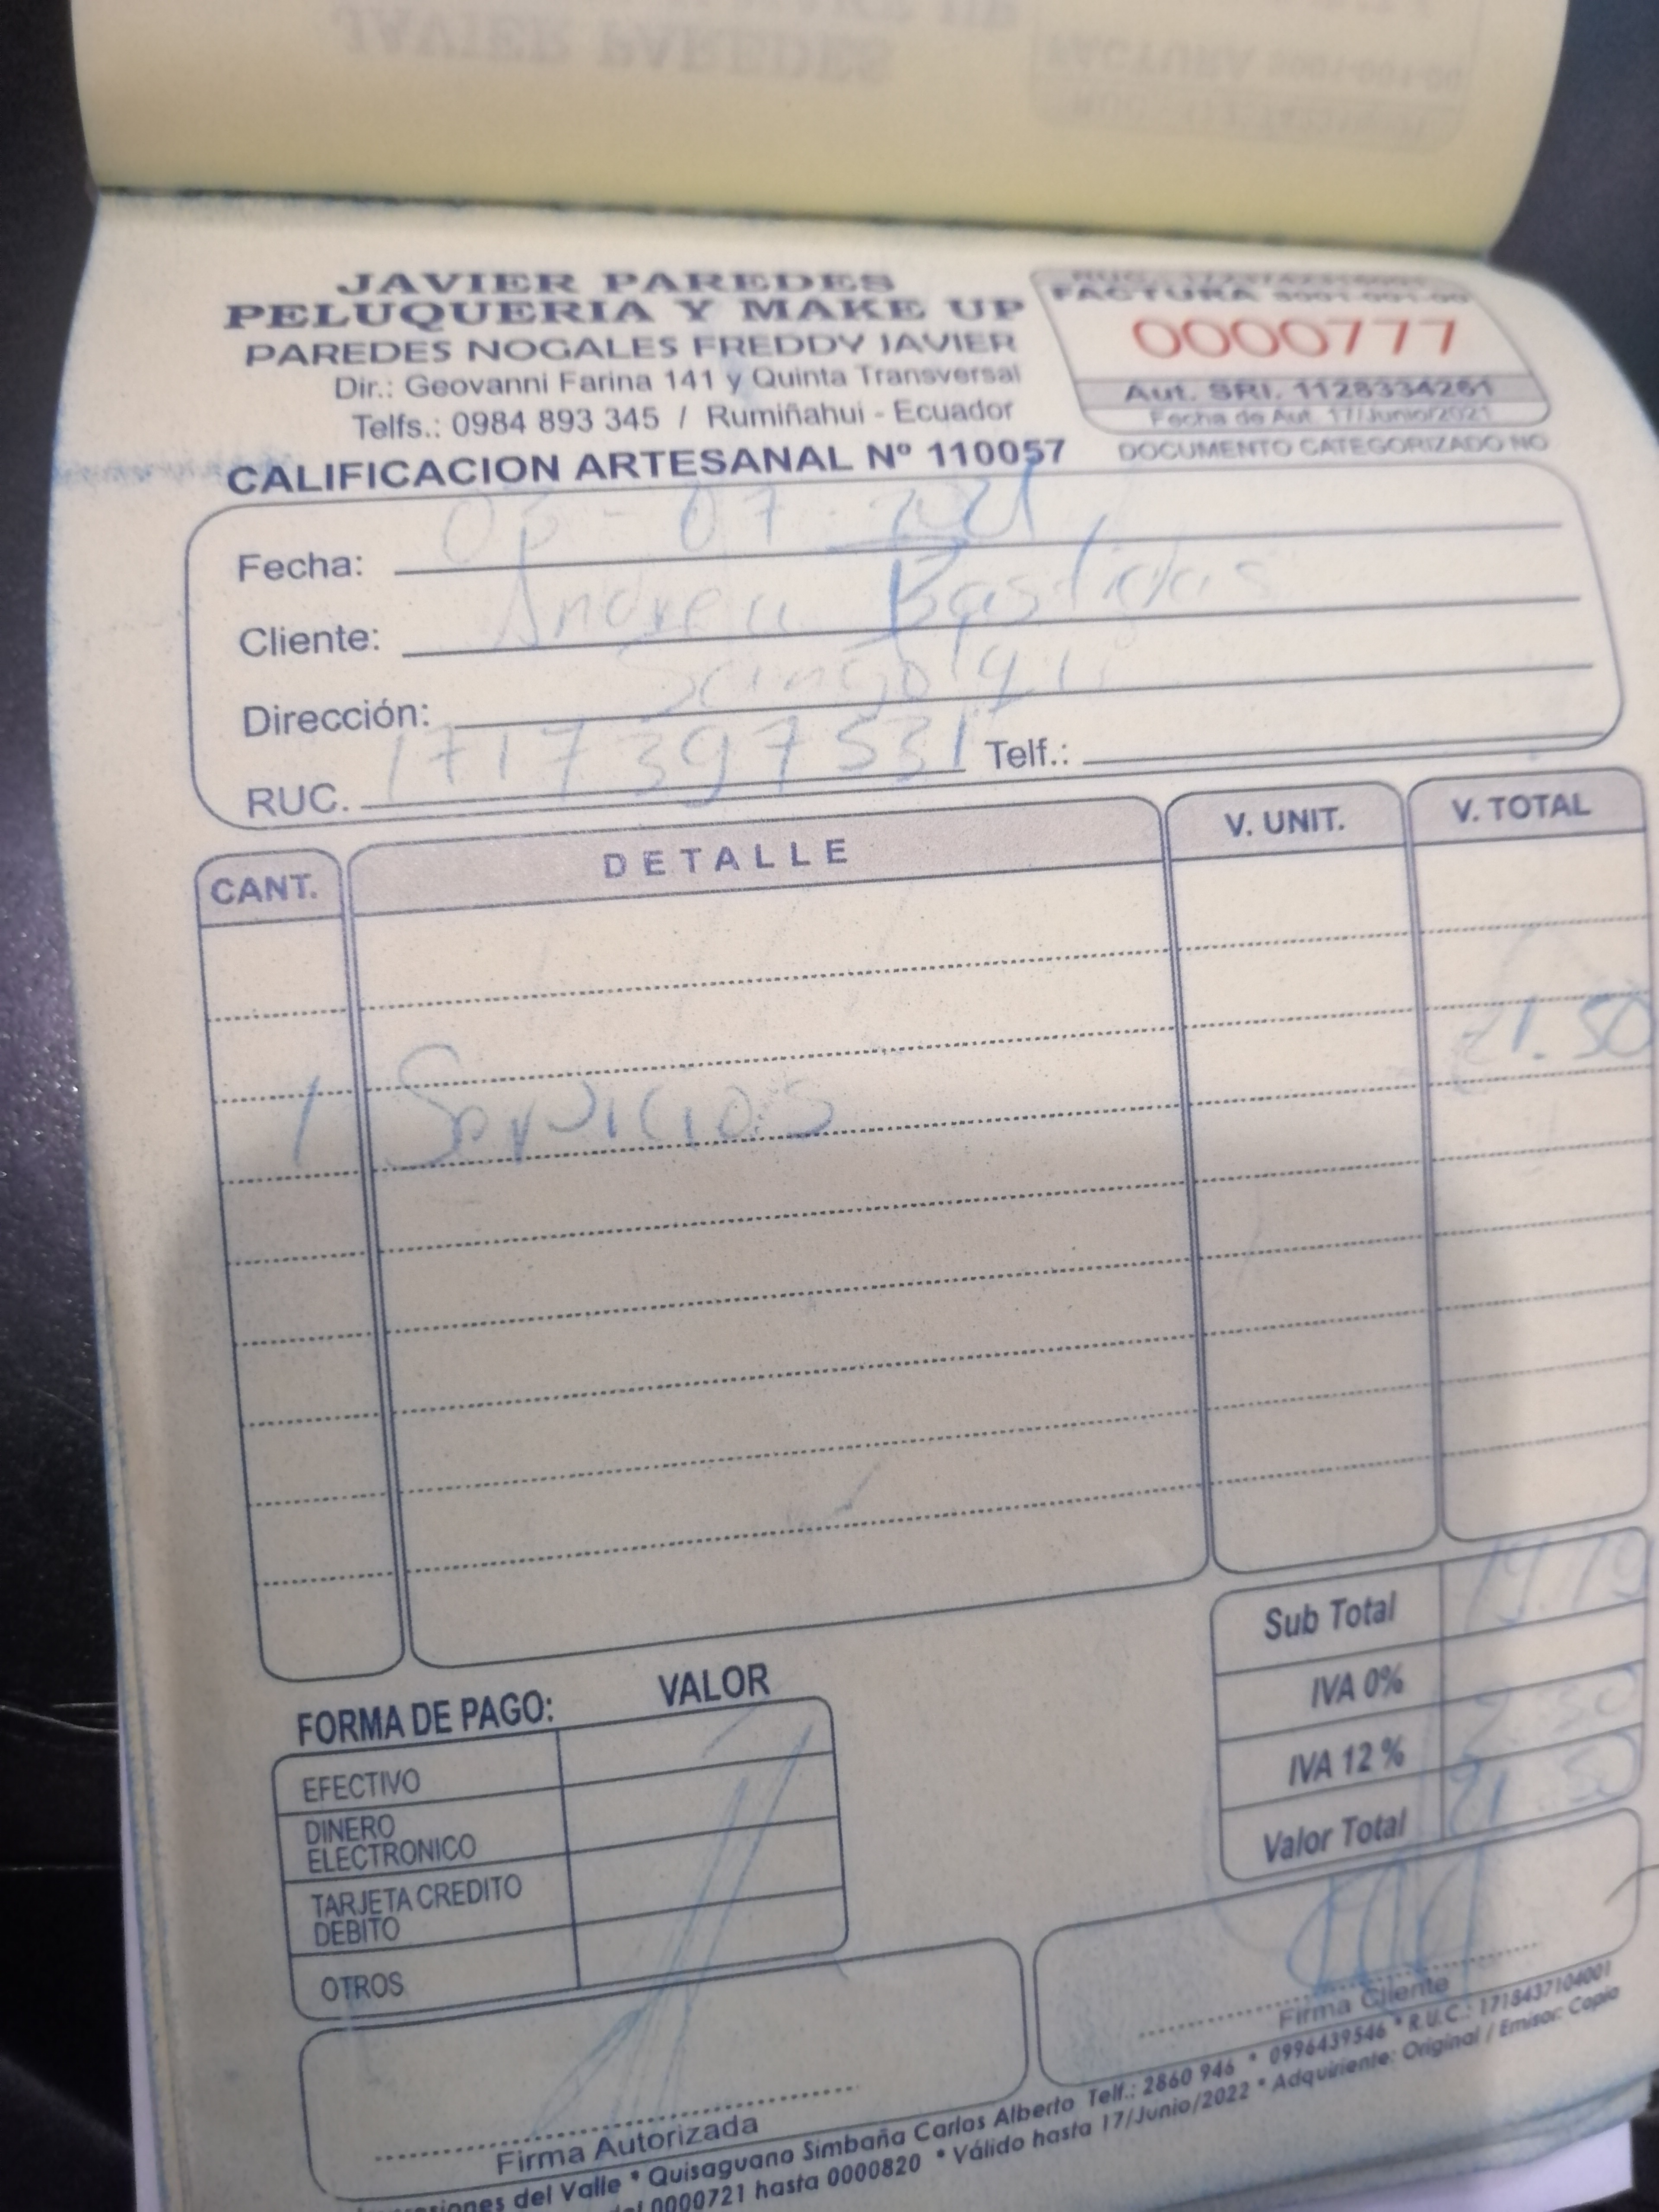 JAVIER PAREDES
PELUQUERIA Y MAKE UP
PAREDES NOGALES FREDDY JAVIER
Dir.: Geovanni Farina 141 y Quinta Transversal
Telfs.: 0984 893 345 / Rumiñahui - Ecuador
CALIFICACION ARTESANAL Nº 110057
FACTURA S001-001-00
0000777
Aut. SRI. 1128334261
Fecha de Aut. 17/Junio/2021
DOCUMENTO CATEGORIZADO NO
Fecha: 03 - 07 - 2021
Cliente: Andrea Bastidas
Dirección: Sangolqui
RUC. 1717397531 Telf.:
CANT. DETALLE V. UNIT. V. TOTAL
1 Servicios 21.50
Sub Total 19.19
IVA 0%
IVA 12 % 2.30
Valor Total 21.50
FORMA DE PAGO: VALOR
EFECTIVO
DINERO
ELECTRONICO
TARJETA CREDITO
DEBITO
OTROS
Firma Autorizada
Firma Cliente
del Valle * Quisaguano Simbaña Carlos Alberto Telf.: 2860 946 * 0996439546 * R.U.C.: 1718437104001
0000721 hasta 0000820 * Válido hasta 17/Junio/2022 * Adquiriente: Original / Emisor: Copia